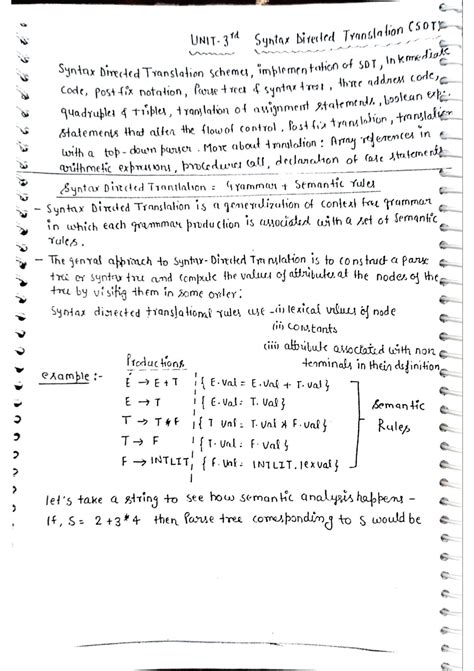 UNIT-3rd Syntax Directed Translation (SDT)
Syntax Directed Translation schemes, implementation of SDT, Intermediate
code, postfix notation, Parse trees & syntax trees, three address code,
quadruples & triples, translation of assignment statements, boolean exp.
statements that alter the flow of control, Postfix translation, translation
with a top-down parser. More about translation: Array references in
arithmetic expressions, procedures call, declaration of case statements
Syntax Directed Translation = Grammar + Semantic rules
- Syntax Directed Translation is a generalization of context free grammar
in which each grammar production is associated with a set of semantic
rules.
- The genral approach to Syntax-Directed Translation is to construct a parse
tree or syntax tree and compute the values of attributes at the nodes of the
tree by visitig them in some order:
Syntax directed translational rules use - (i) lexical values of node
(ii) constants
(iii) attribute associated with non
terminals in their definition
Productions
example :- E → E + T { E.val = E.val + T.val }
E → T { E.val = T.val } Semantic
T → T * F { T val = T.val * F.val } Rules
T → F { T.val = F.val }
F → INTLIT { F.val = INTLIT.lexval }
let's take a string to see how semantic analysis happens -
If, S = 2+3*4 then Parse tree corresponding to S would be